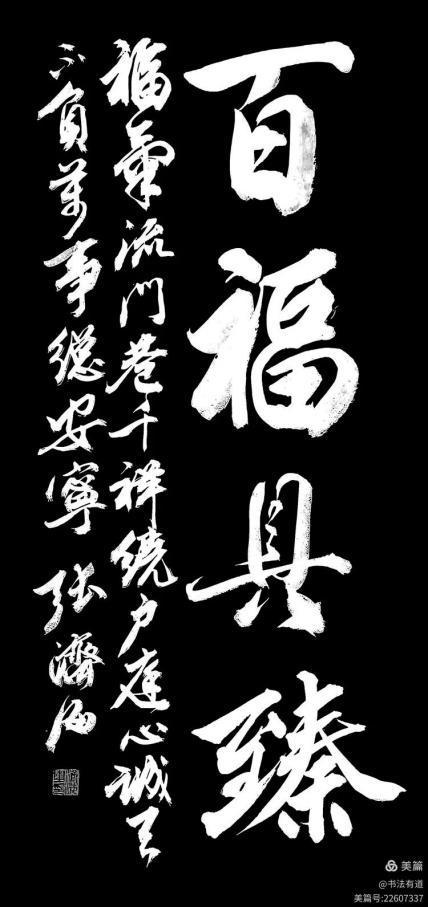 百福具臻
福气流门巷千祥绕户庭心诚天
不负万事总安宁 张济海
美篇
@书法有道
美篇号:22607337